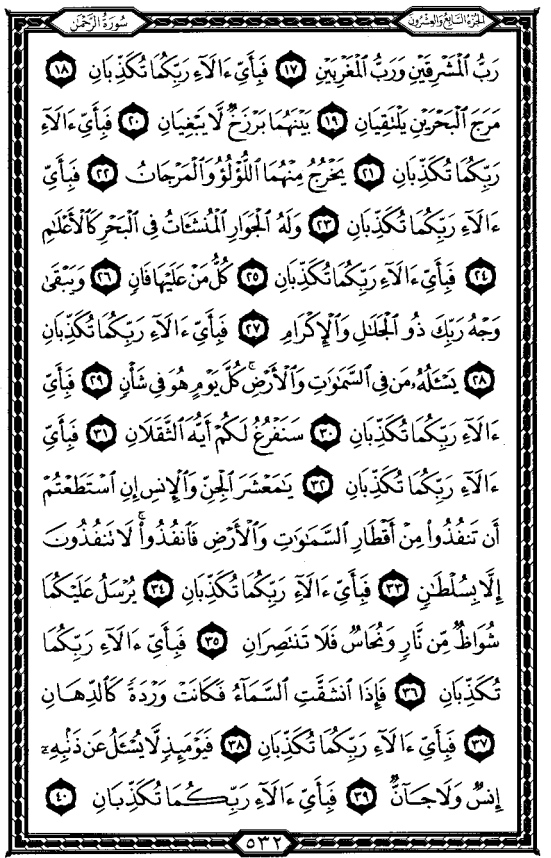 الجزء السابع والعشرون سورة الرحمن
رَبُّ ٱلۡمَشۡرِقَيۡنِ وَرَبُّ ٱلۡمَغۡرِبَيۡنِ ١٧ فَبِأَيِّ ءَالَآءِ رَبِّكُمَا تُكَذِّبَانِ ١٨
مَرَجَ ٱلۡبَحۡرَيۡنِ يَلۡتَقِيَانِ ١٩ بَيۡنَهُمَا بَرۡزَخٞ لَّا يَبۡغِيَانِ ٢٠ فَبِأَيِّ ءَالَآءِ
رَبِّكُمَا تُكَذِّبَانِ ٢١ يَخۡرُجُ مِنۡهُمَا ٱللُّؤۡلُؤُ وَٱلۡمَرۡجَانُ ٢٢ فَبِأَيِّ
ءَالَآءِ رَبِّكُمَا تُكَذِّبَانِ ٢٣ وَلَهُ ٱلۡجَوَارِ ٱلۡمُنشَـَٔاتُ فِي ٱلۡبَحۡرِ كَٱلۡأَعۡلَٰمِ
٢٤ فَبِأَيِّ ءَالَآءِ رَبِّكُمَا تُكَذِّبَانِ ٢٥ كُلُّ مَنۡ عَلَيۡهَا فَانٖ ٢٦ وَيَبۡقَىٰ
وَجۡهُ رَبِّكَ ذُو ٱلۡجَلَٰلِ وَٱلۡإِكۡرَامِ ٢٧ فَبِأَيِّ ءَالَآءِ رَبِّكُمَا تُكَذِّبَانِ
٢٨ يَسۡـَٔلُهُۥ مَن فِي ٱلسَّمَٰوَٰتِ وَٱلۡأَرۡضِۚ كُلَّ يَوۡمٍ هُوَ فِي شَأۡنٖ ٢٩ فَبِأَيِّ
ءَالَآءِ رَبِّكُمَا تُكَذِّبَانِ ٣٠ سَنَفۡرُغُ لَكُمۡ أَيُّهَ ٱلثَّقَلَانِ ٣١ فَبِأَيِّ
ءَالَآءِ رَبِّكُمَا تُكَذِّبَانِ ٣٢ يَٰمَعۡشَرَ ٱلۡجِنِّ وَٱلۡإِنسِ إِنِ ٱسۡتَطَعۡتُمۡ
أَن تَنفُذُواْ مِنۡ أَقۡطَارِ ٱلسَّمَٰوَٰتِ وَٱلۡأَرۡضِ فَٱنفُذُواْۚ لَا تَنفُذُونَ
إِلَّا بِسُلۡطَٰنٖ ٣٣ فَبِأَيِّ ءَالَآءِ رَبِّكُمَا تُكَذِّبَانِ ٣٤ يُرۡسَلُ عَلَيۡكُمَا
شُوَاظٞ مِّن نَّارٖ وَنُحَاسٞ فَلَا تَنتَصِرَانِ ٣٥ فَبِأَيِّ ءَالَآءِ رَبِّكُمَا
تُكَذِّبَانِ ٣٦ فَإِذَا ٱنشَقَّتِ ٱلسَّمَآءُ فَكَانَتۡ وَرۡدَةٗ كَٱلدِّهَانِ
٣٧ فَبِأَيِّ ءَالَآءِ رَبِّكُمَا تُكَذِّبَانِ ٣٨ فَيَوۡمَئِذٖ لَّا يُسۡـَٔلُ عَن ذَنۢبِهِۦٓ
إِنسٞ وَلَا جَآنّٞ ٣٩ فَبِأَيِّ ءَالَآءِ رَبِّكُمَا تُكَذِّبَانِ ٤٠
٥٣٢